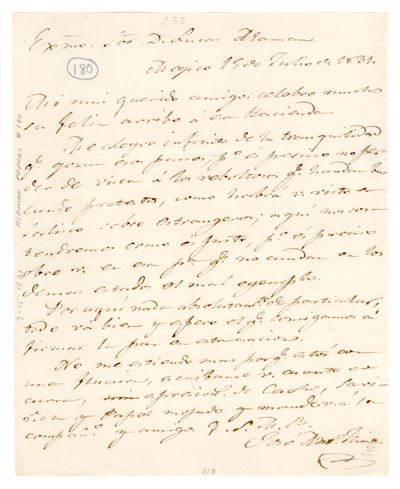 232
Exmo. Sor. D. Lucas Alaman
180
Megico 15 de Julio de 1831.
Mi mui querido amigo: celebro mucho
su feliz arribo á esa Hacienda.
Me alegro infinito de la tranquilidad
qe. gozan esos paises; po. es preciso no per
der de vista á los revoltosos qe. handan bus
cando pretesto, como habrá v. visto en
Jalisco sobre estrangeros; aquí nos sos
tendremos como es justo, po. es preciso
obre v. en esa pa. qe. no cundan en los
demas estados el mal egemplo.
Por aquí nada absolutamte. de particular,
todo vá bien y espero el qe. consigamos á
firmar la paz
No me estiendo mas porqe. estoi con
una fluxion, escribame v. cuanto
ocurra, aprecios de
y Papas mojado y mande v. á su
compañ.o y amigo Q. S. M. B.
José
ALAMAN PAPERS # 180
7-15-1831